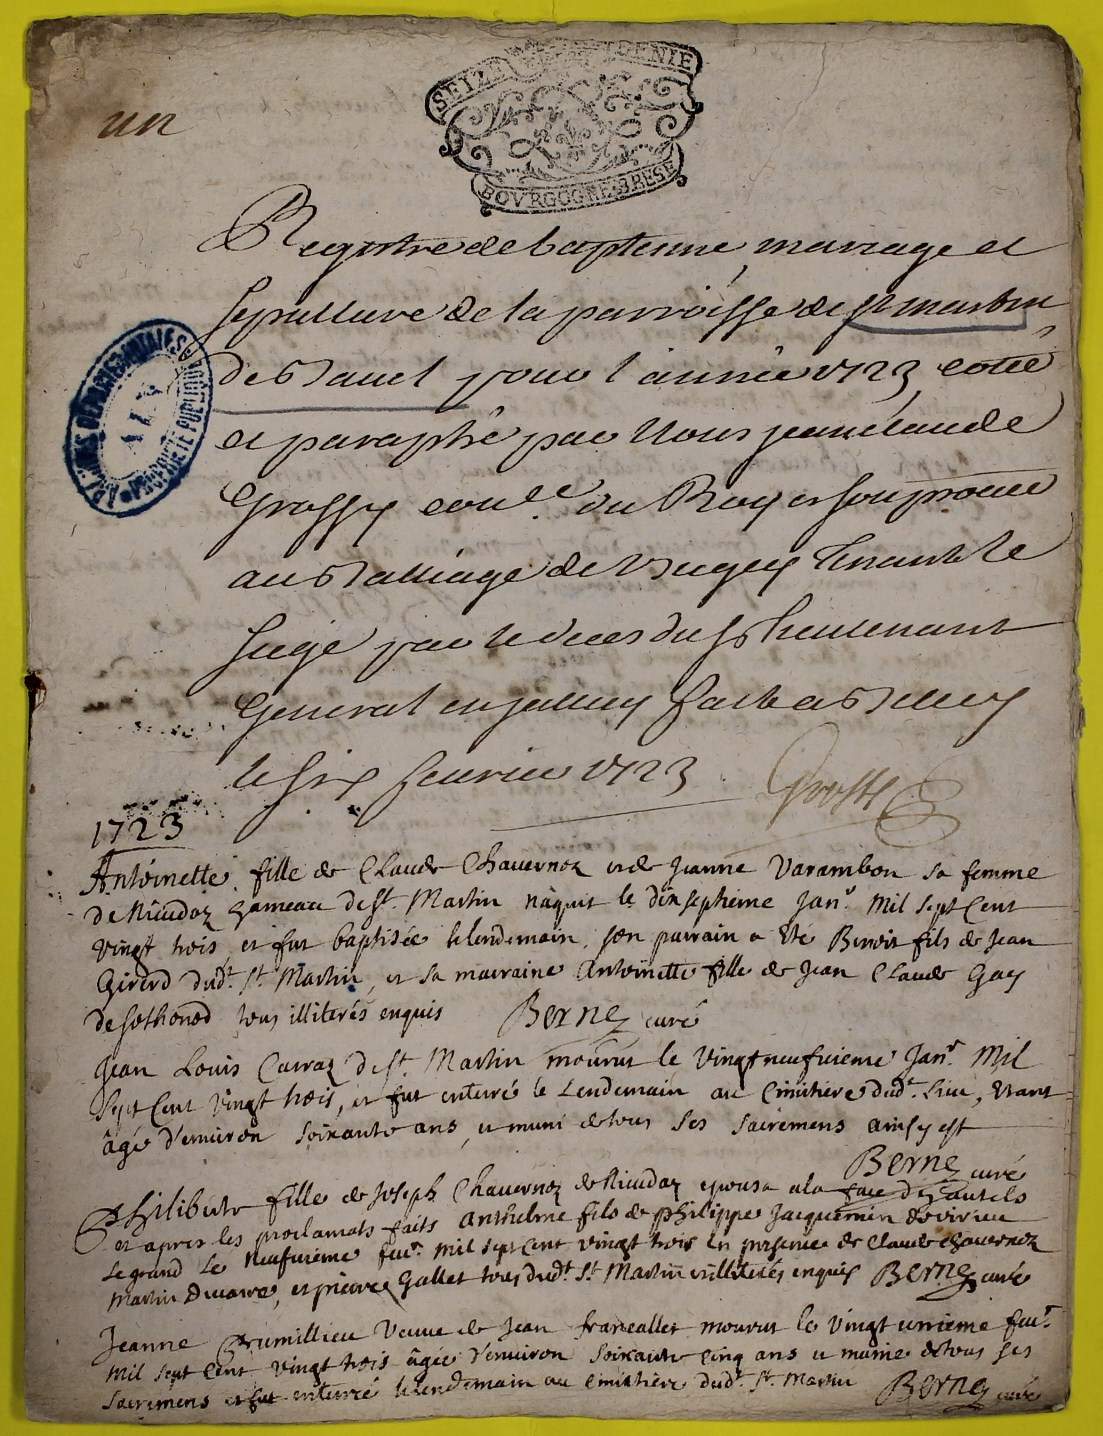 SEIZE DENIE
BOVRGOGNE BRESE
un
Registre de baptemme, mariage et
sepulture de la parroisse de st martin
de Bauel pour l'année 1723 cotté
et paraphé par Nous jean claude
Grossy con.er du Roy et son procur
au Balliage de Bugey tenant le
siege par le deces du Sr lieutenant
General
fait a Belley
le six feurier 1723
Grossy
ARCHIVES DEPARTEMENTALES
AIN
PROPRIETE PUBLIQUE
1723
Antoinette fille de Claude Chavernoz et de Jeanne Varambon sa femme
de Rivudoz hameau de St. Martin náquit le dixseptieme Janr. Mil sept Cent
vingt trois, et fut baptisée le lendemain, son parrain a été Benoit fils de Jean
Girerd dudt. St. Martin, et sa marraine Antoinette fille de Jean Claude Gay
de Sothonod tous illiterés enquis Berne curé
Jean Louis Carraz de St. Martin mourut le vingtneufvieme Janr. Mil
sept Cent vingt trois, et fut enterré le Lendemain au Cimitiere dudt. Lieu, étant
âgé d'environ soixante ans, et muni de tous ses sacremens ainsy est
Berne curé
Philiberte fille de Joseph Chavernoz de Rivudoz epousa a la face des autels
et apres les proclamats faits Anthelme fils de philippe Jacquemin de virieu
le grand le Neufvieme fevr. Mil sept Cent vingt trois En presence de Claude Chavernoz
Martin Ducarre, et pierre Gallet tous dudt. St. Martin illiterés enquis Berne curé
Jeanne Brumillieu Veuve de Jean francallet mourut le vingt unieme fevr.
Mil sept Cent vingt trois âgée d'environ soixante Cinq ans et munie de tous ses
sacremens et fut enterrée le lendemain au Cimitiere dudt. St. Martin Berne curé